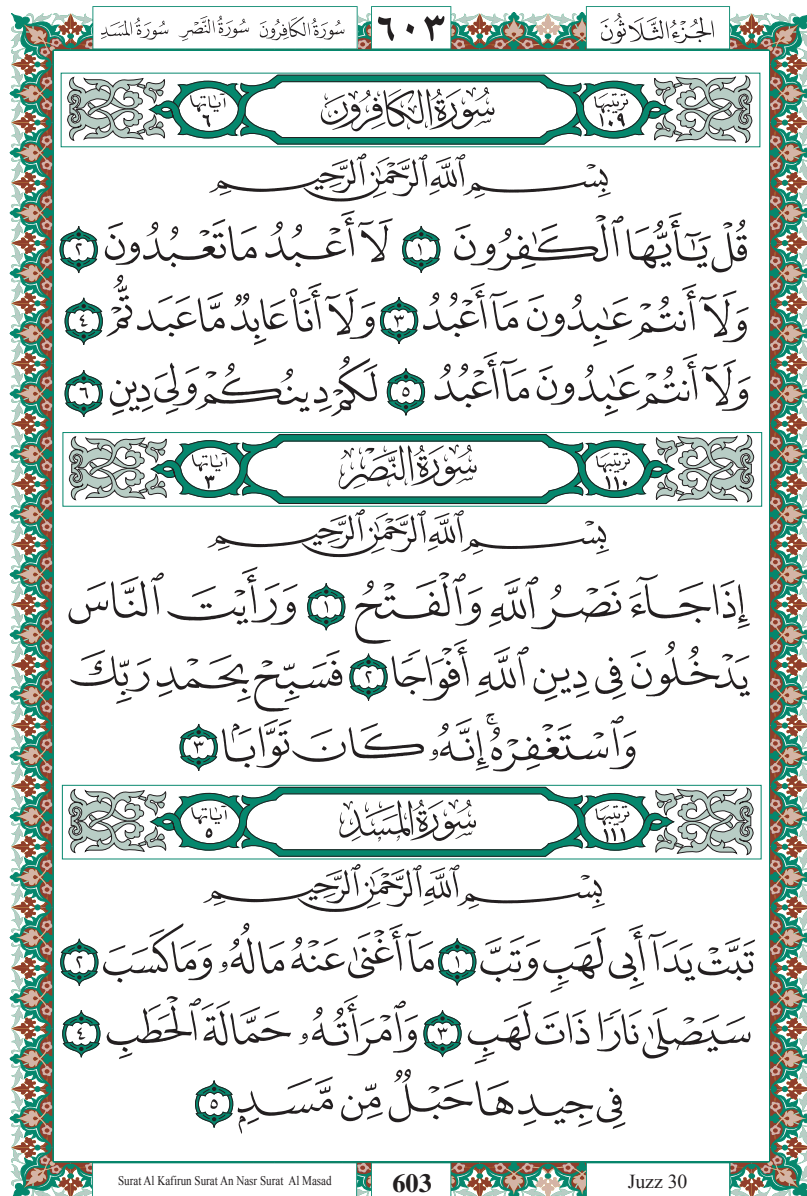 الجُزْءُ الثَّلَاثُونَ ٦٠٣ سُورَةُ الكَافِرُونَ سُورَةُ النَّصْرِ سُورَةُ المَسَدِ
ترتيبها ١٠٩ سُورَةُ الكَافِرُونَ آياتها ٦
بِسْمِ ٱللَّهِ ٱلرَّحْمَٰنِ ٱلرَّحِيمِ
قُلْ يَٰٓأَيُّهَا ٱلْكَٰفِرُونَ ١ لَآ أَعْبُدُ مَا تَعْبُدُونَ ٢
وَلَآ أَنتُمْ عَٰبِدُونَ مَآ أَعْبُدُ ٣ وَلَآ أَنَا۠ عَابِدٌ مَّا عَبَدتُّمْ ٤
وَلَآ أَنتُمْ عَٰبِدُونَ مَآ أَعْبُدُ ٥ لَكُمْ دِينُكُمْ وَلِىَ دِينِ ٦
ترتيبها ١١٠ سُورَةُ النَّصْرِ آياتها ٣
بِسْمِ ٱللَّهِ ٱلرَّحْمَٰنِ ٱلرَّحِيمِ
إِذَا جَآءَ نَصْرُ ٱللَّهِ وَٱلْفَتْحُ ١ وَرَأَيْتَ ٱلنَّاسَ
يَدْخُلُونَ فِى دِينِ ٱللَّهِ أَفْوَاجًا ٢ فَسَبِّحْ بِحَمْدِ رَبِّكَ
وَٱسْتَغْفِرْهُ ۚ إِنَّهُۥ كَانَ تَوَّابًۢا ٣
ترتيبها ١١١ سُورَةُ المَسَدِ آياتها ٥
بِسْمِ ٱللَّهِ ٱلرَّحْمَٰنِ ٱلرَّحِيمِ
تَبَّتْ يَدَآ أَبِى لَهَبٍ وَتَبَّ ١ مَآ أَغْنَىٰ عَنْهُ مَالُهُۥ وَمَا كَسَبَ ٢
سَيَصْلَىٰ نَارًا ذَاتَ لَهَبٍ ٣ وَٱمْرَأَتُهُۥ حَمَّالَةَ ٱلْحَطَبِ ٤
فِى جِيدِهَا حَبْلٌ مِّن مَّسَدٍۭ ٥
Surat Al Kafirun Surat An Nasr Surat Al Masad 603 Juzz 30